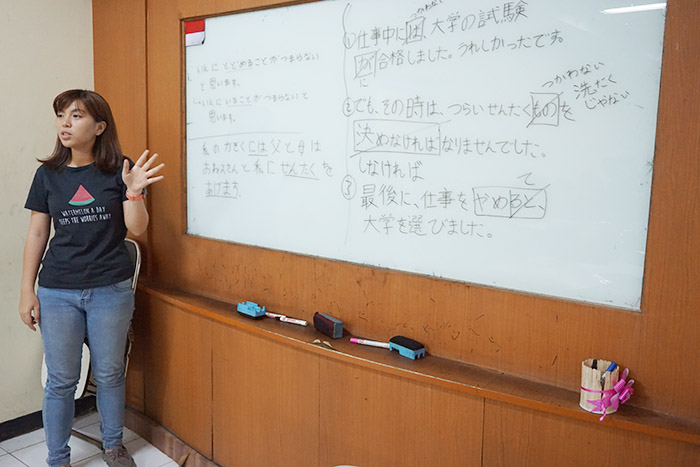 いんに とどめることが つまらない
と思います。
いんに いることが つまらないと
思います。
私の
には 父と母は
おねえさんと 私に せんたくを
あげます。
つかわない
①仕事中に 大学の試験
が合格しました。うれしかったです。
に
つかわない
洗たく
じゃない
②でも、その時は、つらいせんたくものを
決めなければなりませんでした。
しなければ
て
③最後に、仕事をやめると、
大学を選びました。
WATERMELON A DAY
KEEPS THE WORRIES AWAY